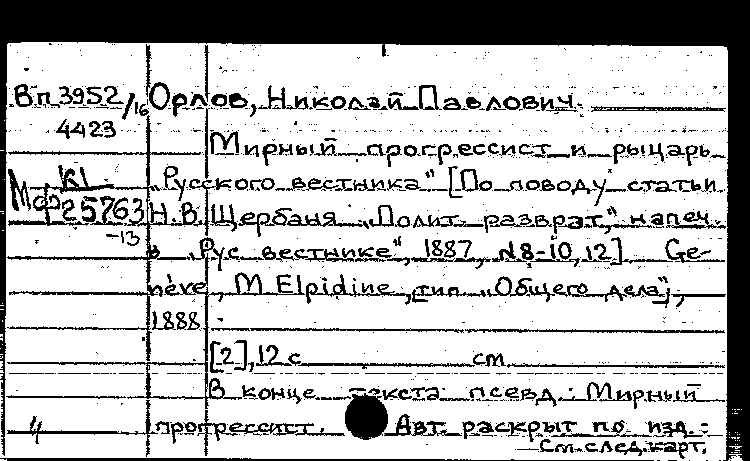 Вп 3952/16 Орлов, Николай Павлович.
4423
Мирный прогрессист и рыцарь
К1
Мф 25763
-13
„Русского вестника" [По поводу статьи
Н.В. Щербаня „Полит. разврат," напеч.
в „Рус вестнике", 1887, №8-10, 12]. Ge-
nève, M Elpidine, [тип „Общего дела"],
1888.
[2], 12 с см
В конце текста псевд.: Мирный
4
прогрессист. Авт. раскрыт по изд.:
См. след. карт.